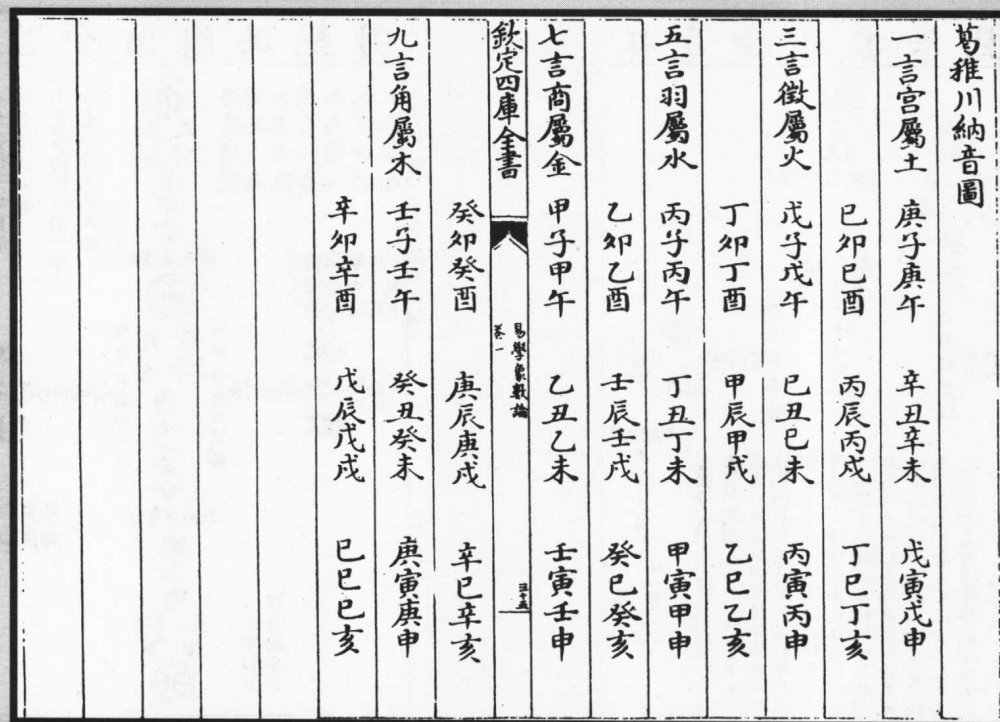 葛稚川納音圖
一言宫屬土 庚子庚午 辛丑辛未 戊寅戊申
己卯己酉 丙辰丙戌 丁巳丁亥
三言徵屬火 戊子戊午 己丑己未 丙寅丙申
丁卯丁酉 甲辰甲戌 乙巳乙亥
五言羽屬水 丙子丙午 丁丑丁未 甲寅甲申
乙卯乙酉 壬辰壬戌 癸巳癸亥
七言商屬金 甲子甲午 乙丑乙未 壬寅壬申
欽定四庫全書 易學象數論 卷一 三十五
癸卯癸酉 庚辰庚戌 辛巳辛亥
九言角屬木 壬子壬午 癸丑癸未 庚寅庚申
辛卯辛酉 戊辰戊戌 己巳己亥